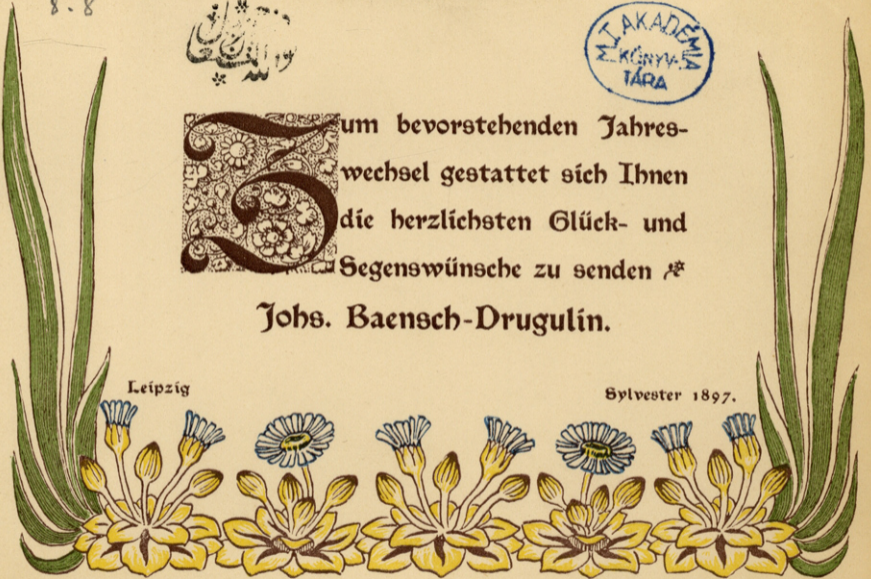 8.8
M. T. AKADÉMIA
KÖNYV-
TÁRA
Zum bevorstehenden Jahres-
wechsel gestattet sich Ihnen
die herzlichsten Glück- und
Segenswünsche zu senden
Johs. Baensch-Drugulin.
Leipzig
Sylvester 1897.